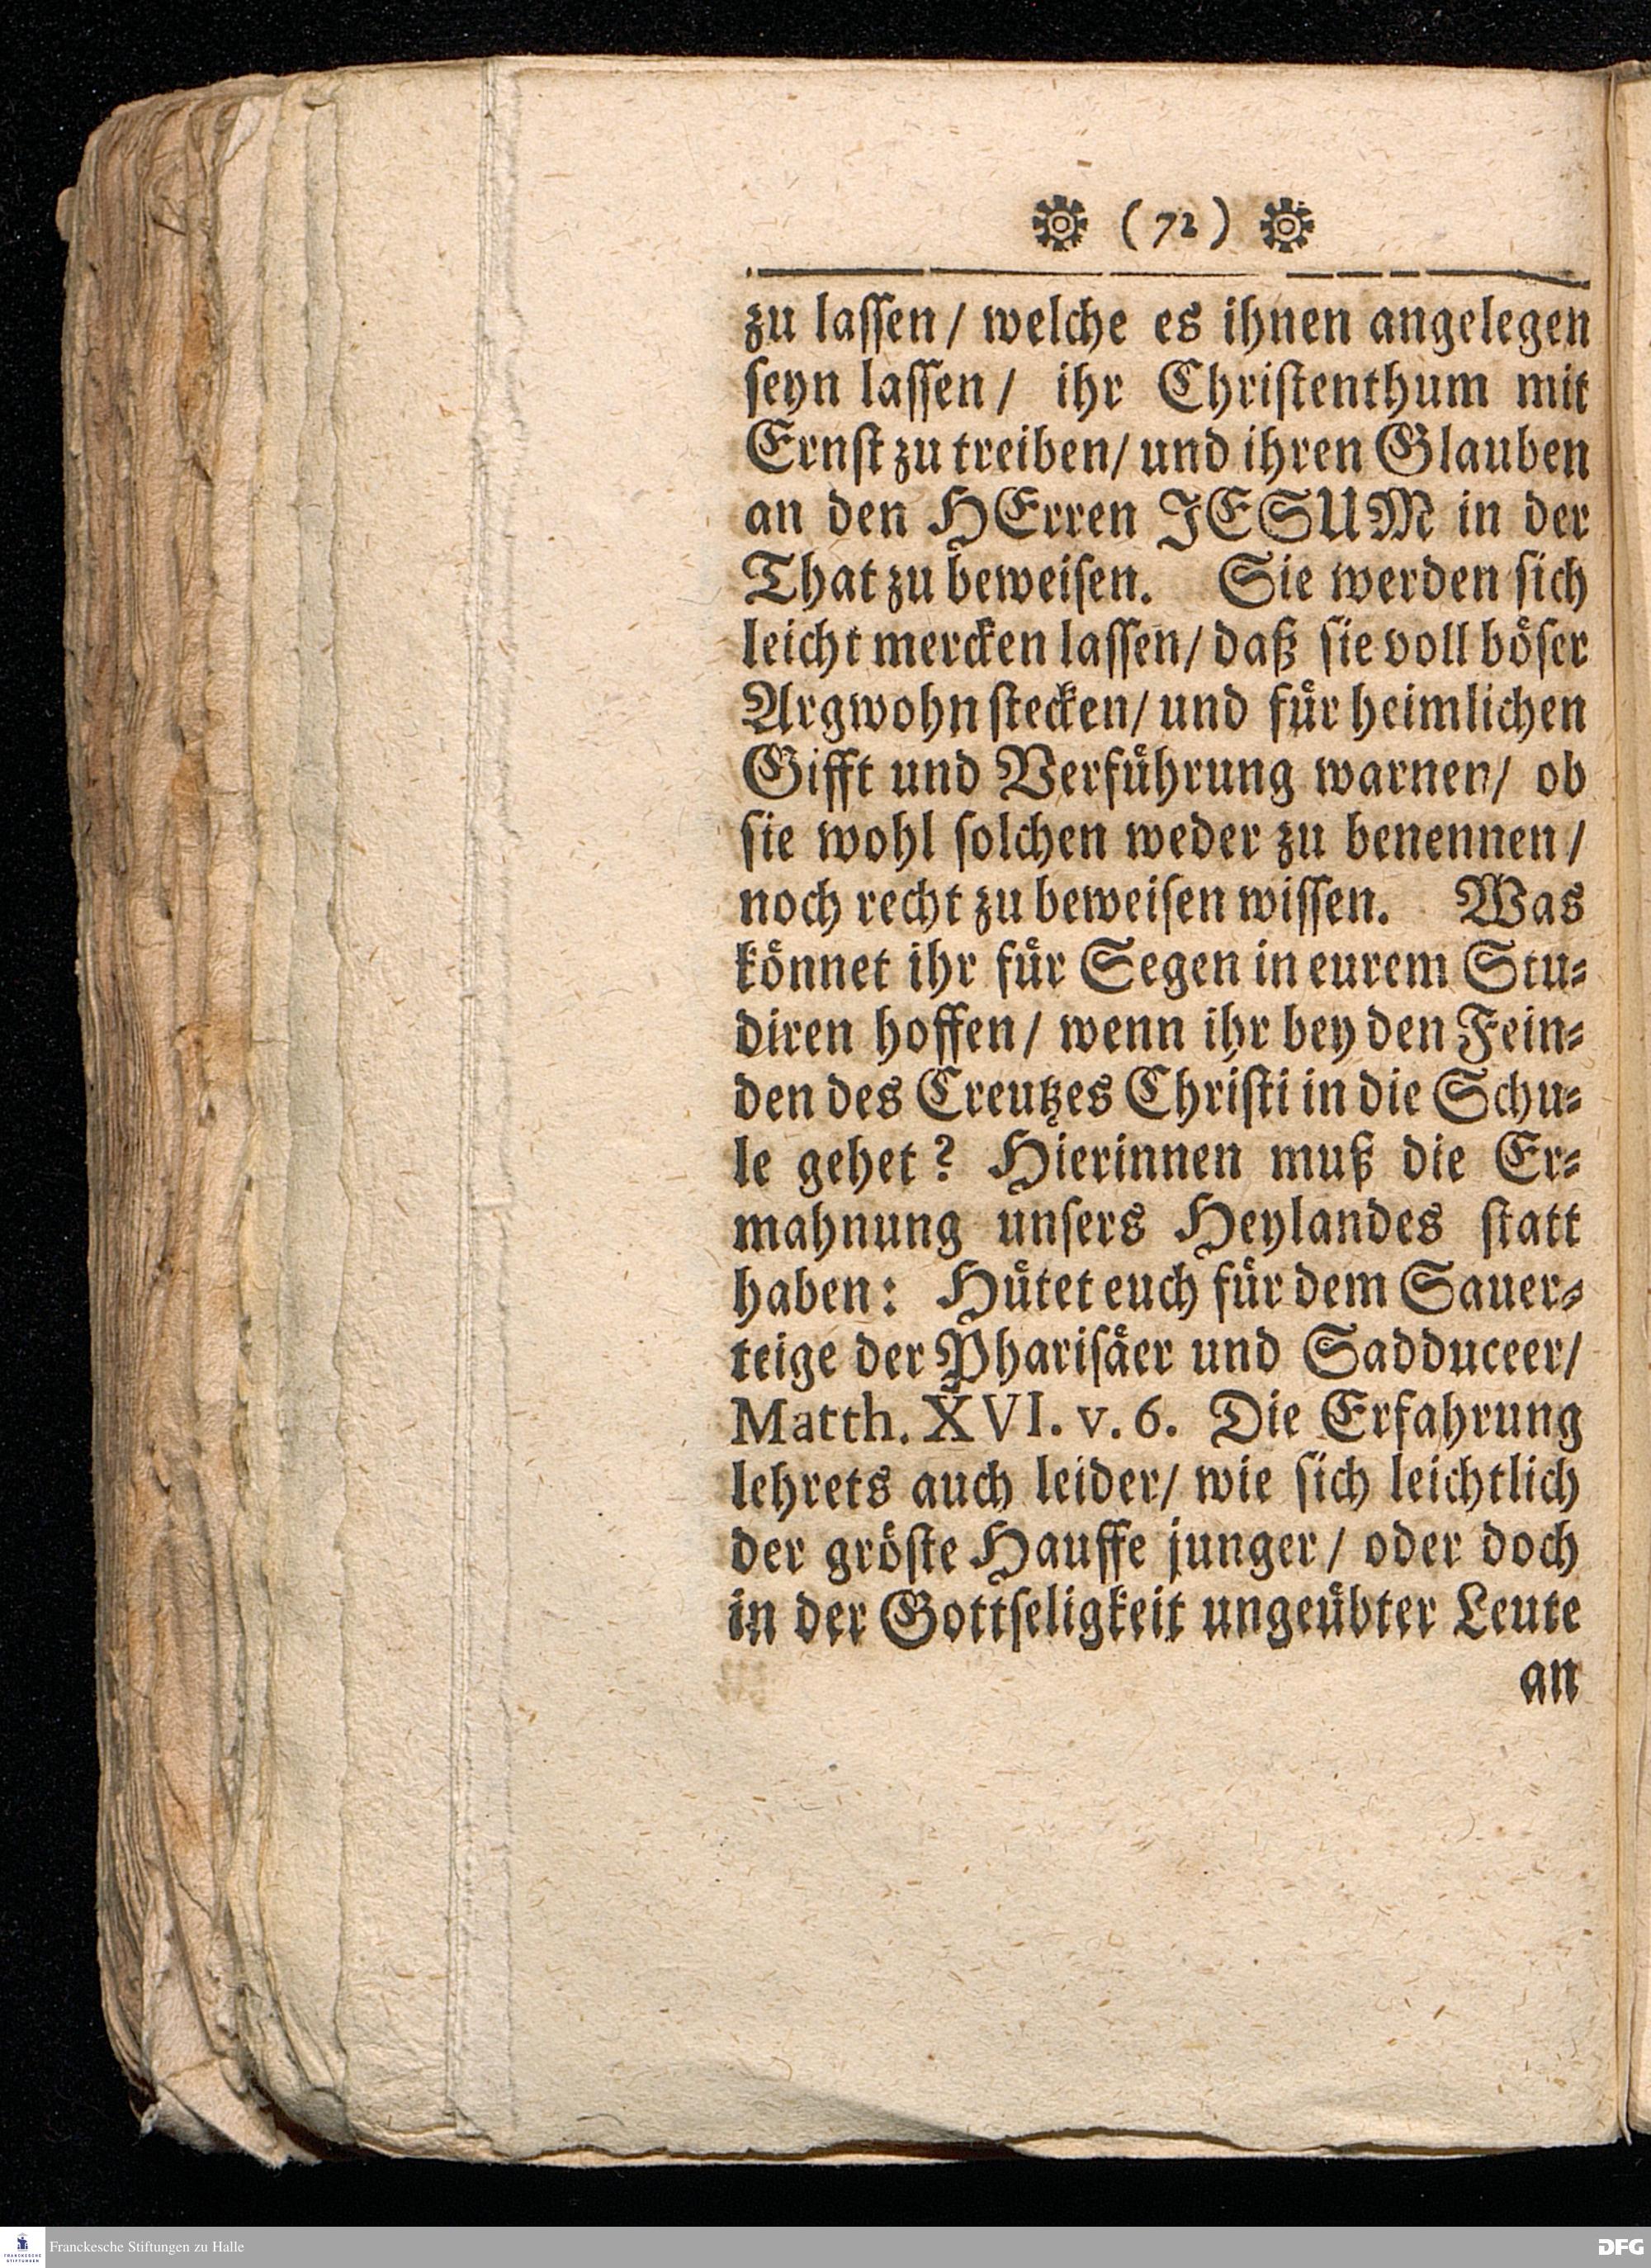 ( 72 )
zu laſſen/ welche es ihnen angelegen
ſeyn laſſen/ ihr Chriſtenthum mit
Ernſt zu treiben/ und ihren Glauben
an den HErren JESUM in der
That zu beweiſen. Sie werden ſich
leicht mercken laſſen/ daß ſie voll boͤſer
Argwohn ſtecken/ und fuͤr heimlichen
Gifft und Verfuͤhrung warnen/ ob
ſie wohl ſolchen weder zu benennen/
noch recht zu beweiſen wiſſen. Was
koͤnnet ihr fuͤr Segen in eurem Stu⸗
diren hoffen/ wenn ihr bey den Fein⸗
den des Creutzes Chriſti in die Schu⸗
le gehet? Hierinnen muß die Er⸗
mahnung unſers Heylandes ſtatt
haben: Huͤtet euch fuͤr dem Sauer⸗
teige der Phariſaͤer und Sadduceer/
Matth. XVI. v. 6. Die Erfahrung
lehrets auch leider/ wie ſich leichtlich
der groͤſte Hauffe junger/ oder doch
in der Gottſeligkeit ungeuͤbter Leute
an
FRANCKESCHE STIFTUNGEN
Franckesche Stiftungen zu Halle
DFG